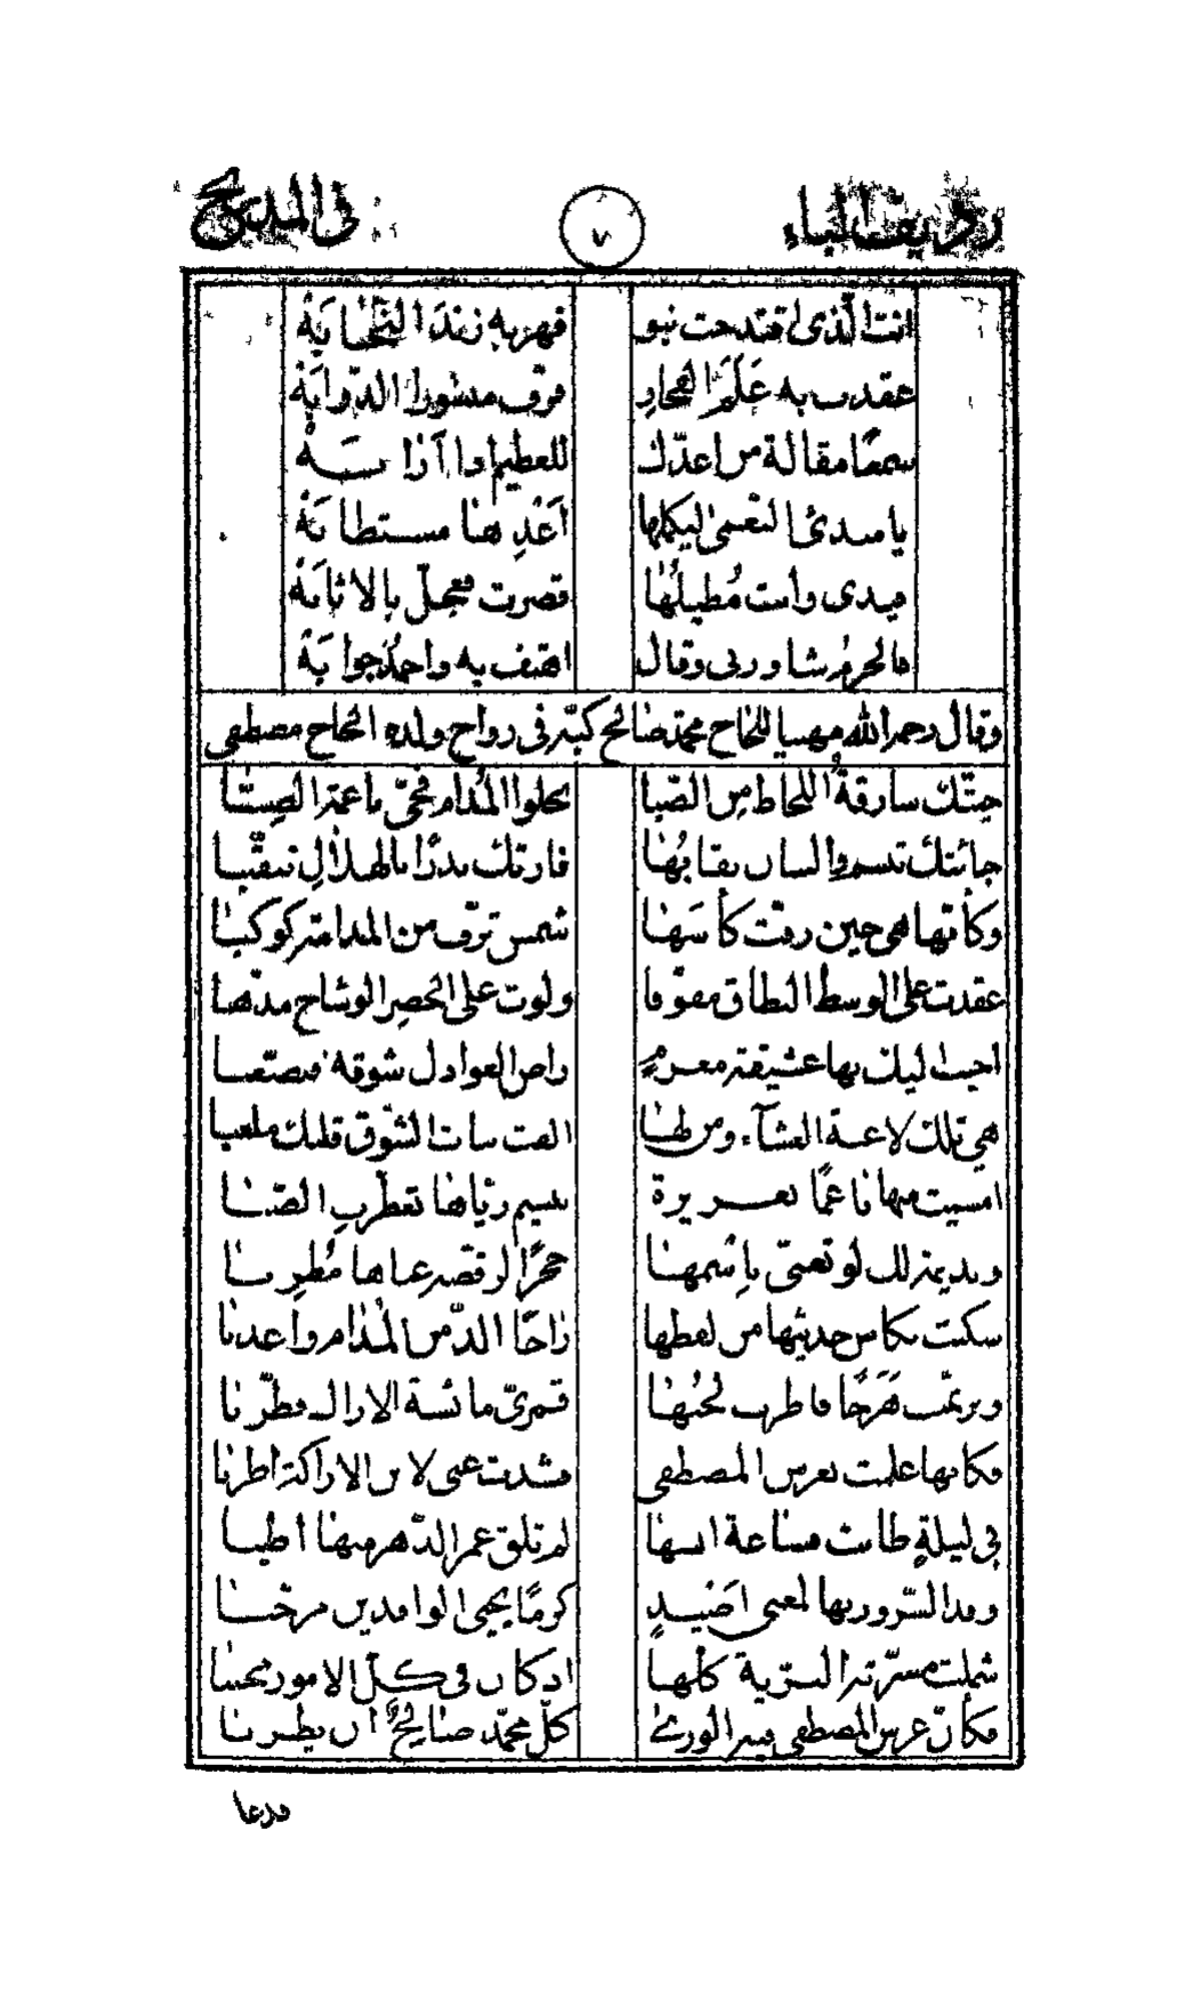 رديف الباء ٧ في المديح
انت الّذى اقتدحت نبو فهر به زندَ النَّجابَهْ
عقدت به عَلَمَ الفخارِ فوق منشور الذوابَهْ
سمعًا مقالة من اعدّك للعظيم اذا آرابَهْ
يا مبدئ النعمى ليكملها أعَدِ هنا مستطابَهْ
ميدى وانت مُطيلُها قصرت فتجمل بالاثابَهْ
فالحزم شاورنى وقال اهتف به واحمد جوابَهْ
وقال رحمه الله مهنيا للحاج محمد صالح كبّه فى زواج ولده الحاج مصطفى
حيّتك سارقةُ اللحاظ من الظّبا تجلوا المُدام فحيّ ناعمة الصِبّا
جائتك تبسم والبنان نقابُها فارتك بدرًا بالهلالِ تنقّبا
وكأنّها هى حين زفّت كأسَها شمس تزفّ من المدامة كوكبا
عقدت على الوسط النطاق مفوّفا ولوت على الخصر الوشاح مذهّبا
احبب اليك بها عشيقة مغرمٍ راض العواذل شوقه فتصعّبا
هي تلك لاعبة العشاء ومن لها الفت بنات الشوق قلبك ملعبا
امسيت منها ناعمًا بغريرة بنسيم ريّاها تعطّرت الصّبا
وبديمة لك لو تغنّى باسمها حجرًا لرقّصه غناها مُطربا
سكبت بكأس حديثها من لفظها راحًا الذّ من المُدام واعذبا
وبرنّمت هَزَجًا فاطرب لحنُها قمريّ مائسة الاراك فطرّبا
فكأنها علمت بعرس المصطفى فشدت غنى لابن الاراكة اطربا
فى ليلةٍ طابت فساعة انسها لم تلق عمر الدّهر منها أطيبا
وفد السّرور بها لمغنى اصْيدٍ كرمًا يحيى الوافدين مرحّبا
شملت مسرّته البريّة كلها اذ كان فى كلّ الامور محببا
فكأنّ عرس المصطفى فيه الورى كلّ محمّد صالحٌ أن يطربا
فدعا